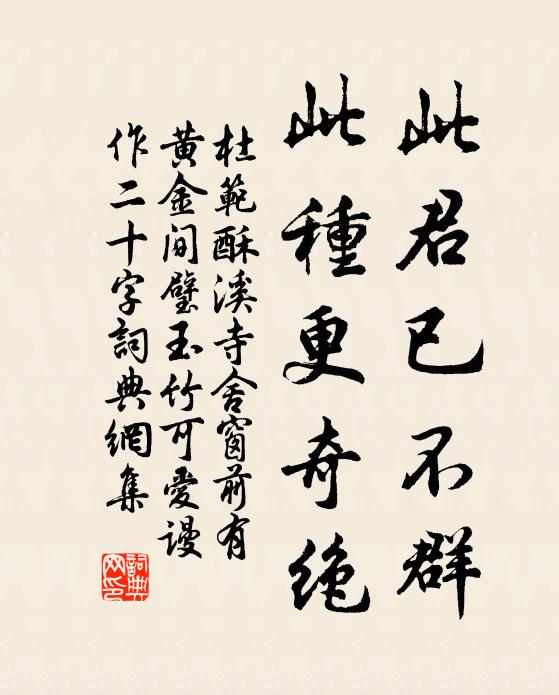 此君已不群
此種更奇絶
杜範酥溪寺舍窗前有
黄金間壁玉竹可愛謾
作二十字詞典網集
詞典
网印